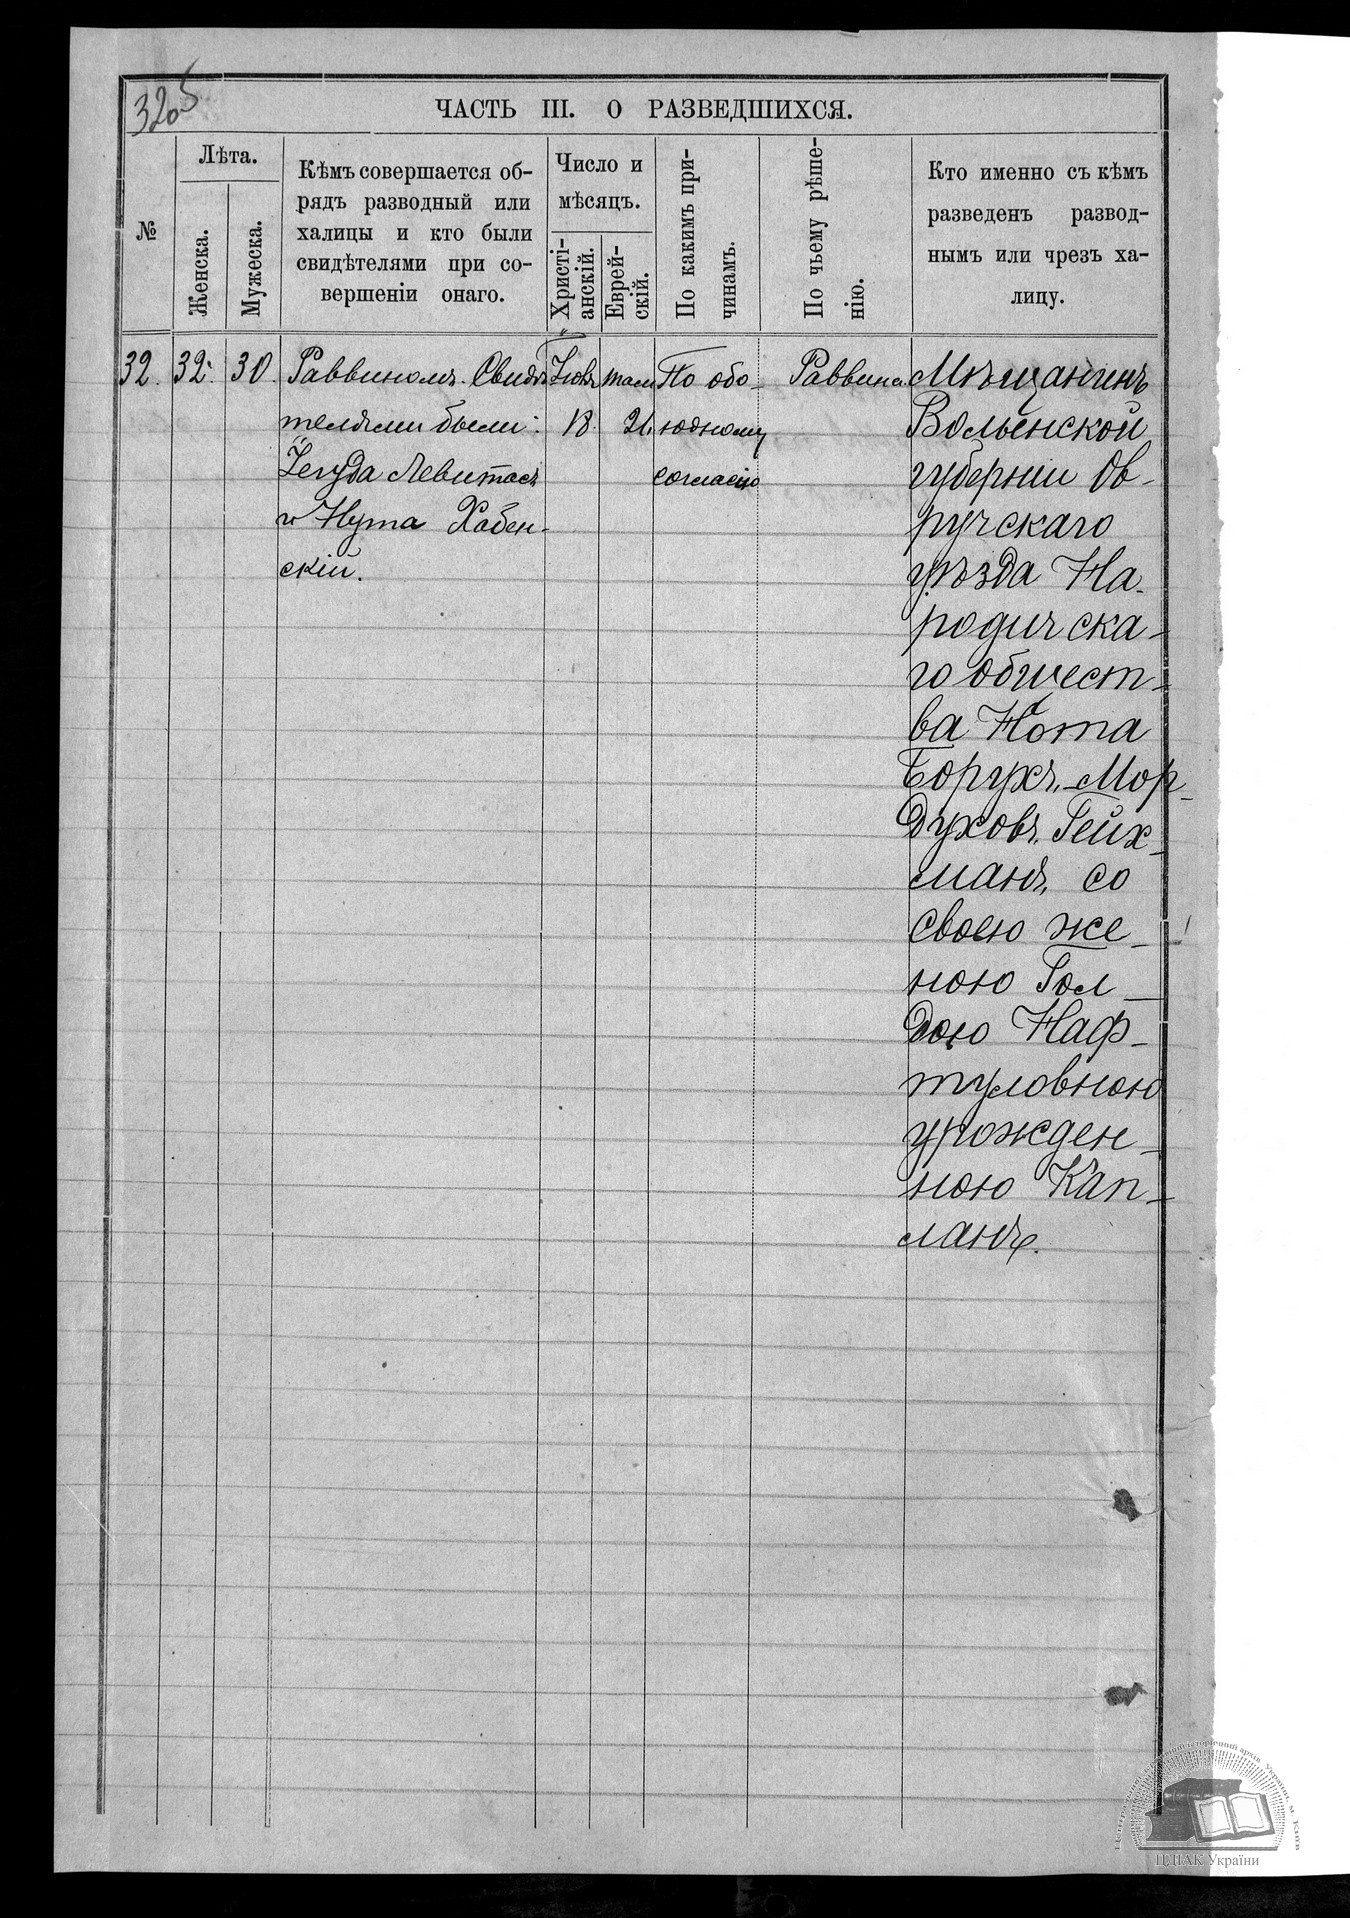 3205
ЧАСТЬ III. О РАЗВЕДШИХСЯ.
№
Лѣта.
Женска.
Мужеска.
Кѣмъ совершается об-
рядъ разводный или
халицы и кто были
свидѣтелями при со-
вершеніи онаго.
Число и
мѣсяцъ.
Христі-
анскій.
Еврей-
скій.
По какимъ при-
чинамъ.
По чьему рѣше-
нію.
Кто именно съ кѣмъ
разведенъ развод-
нымъ или чрезъ ха-
лицу.
32. 32. 30.
Раввиномъ. Свидѣ
телями были:
Іегуда Левитасъ
и Нута Хабен-
скій.
18.
Там
21.
По обо-
юдному
согласію
Раввина
Мѣщанинъ
Волынской
губерніи Ов-
ручскаго
уѣзда На-
родичска-
го общест-
ва Нота
Борухъ-Мор-
духовъ Гейх-
манъ, со
своею же-
ною Гол-
дою Наф-
туловною
урожден-
ною Кап-
ланъ.
ЦДІАК України